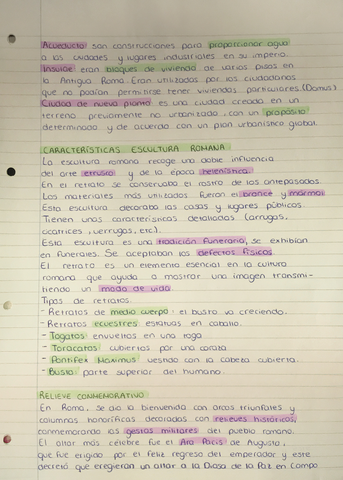 Acueducto son construcciones para proporcionar agua
a las ciudades y lugares industriales en su imperio.
Insulae eran bloques de vivienda de varios pisos en
la Antigua Roma. Eran utilizadas por los ciudadanos
que no podían permitirse tener viviendas particulares (Domus)
Ciudad de nueva planta es una ciudad creada en un
terreno previamente no urbanizado, con un propósito
determinado y de acuerdo con un plan urbanístico global.
CARACTERÍSTICAS ESCULTURA ROMANA
La escultura romana recoge una doble influencia
del arte etrusco y de la época helenística.
En el retrato se conservaba el rostro de los antepasados.
Los materiales más utilizados fueron el bronce y mármol
Esta escultura decoraba las casas y lugares públicos.
Tienen unas características detalladas (arrugas,
cicatrices, verrugas, etc).
Esta escultura es una tradición funeraria, se exhibían
en funerales. Se aceptaban los defectos físicos.
El retrato es un elemento esencial en la cultura
romana que ayuda a mostrar una imagen transmi-
tiendo un modo de vida.
Tipos de retratos.
- Retratos de medio cuerpo: el busto va creciendo.
- Retratos ecuestres estatuas en caballo.
- Togatos envueltos en una toga
- Toracatos cubiertos por una coraza
- Pontifex Maximus vestido con la cabeza cubierta.
- Busto parte superior del humano.
RELIEVE CONMEMORATIVO
En Roma, se da la bienvenida con arcos triunfales y
columnas honoríficas decorados con relieves históricos,
conmemorando las gestas militares del pueblo romano.
El altar más célebre fue el Ara Pacis de Augusto,
que fue erigido por el feliz regreso del emperador y este
decretó que erigieran un altar a la Diosa de la Paz en Campo